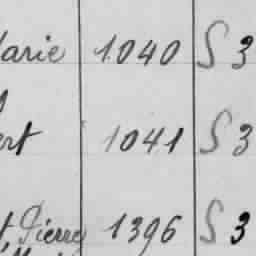 Marie 1040 S 3
ert 1041 S 3
t Pierre 1396 S 3